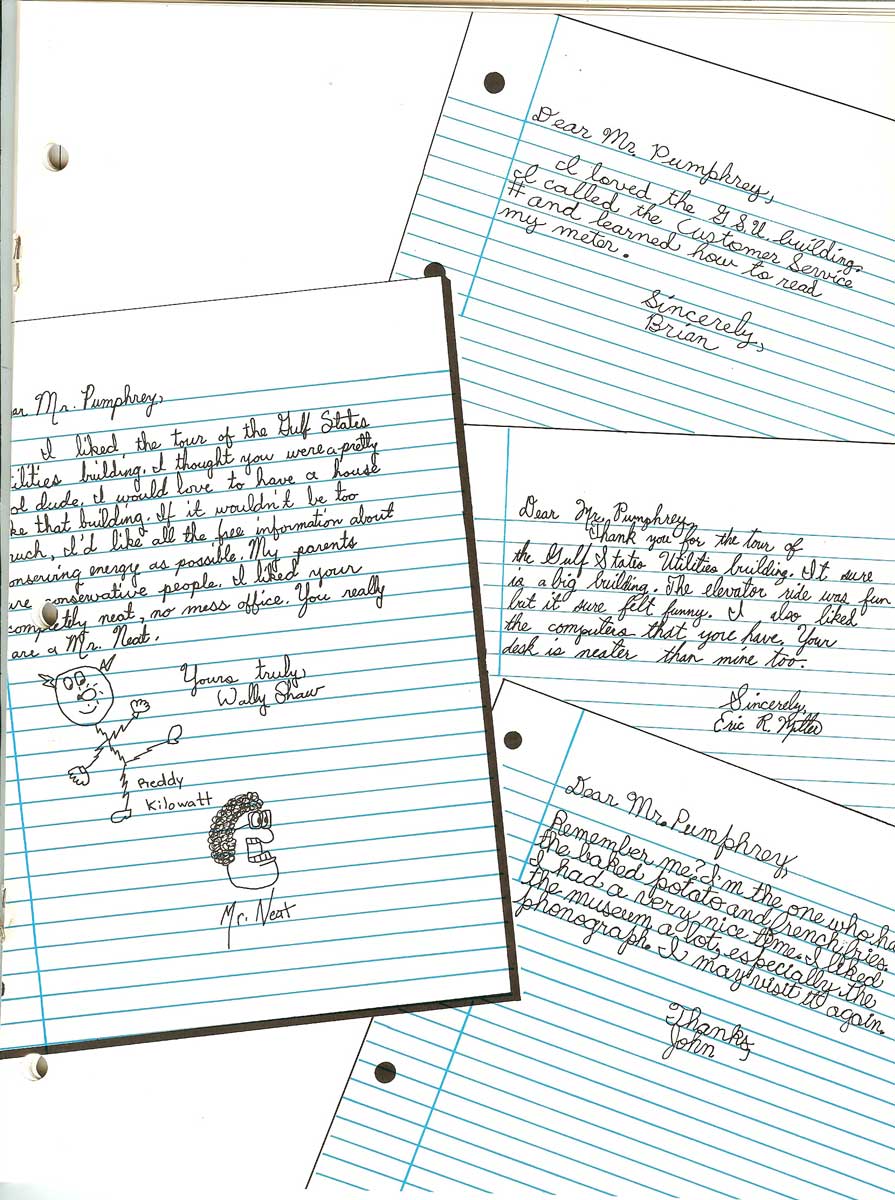 Dear Mr. Pumphrey,
I loved the G.S.U. building.
I called the Customer Service
# and learned how to read
my meter.
Sincerely,
Brian
ar Mr. Pumphrey,
I liked the tour of the Gulf States
ilities building. I thought you were a pretty
ol dude. I would love to have a house
ke that building. If it wouldn't be too
uch, I'd like all the free information about
onserving energy as possible. My parents
are conservative people. I liked your
completly neat, no mess office. You really
are a Mr. Neat.
Yours truly,
Wally Shaw
Reddy
Kilowatt
Mr. Neat
Dear Mr. Pumphrey,
Thank you for the tour of
the Gulf States Utilities building. It sure
is a big building. The elevator ride was fun
but it sure felt funny. I also liked
the computers that you have. Your
desk is neater than mine too.
Sincerely,
Eric R. Miller
Dear Mr. Pumphrey,
Remember me? I'm the one who ha
the baked potato and french fries.
I had a very nice time. I liked
the museum a lot, especially the
phonograph. I may visit it again.
Thanks,
John